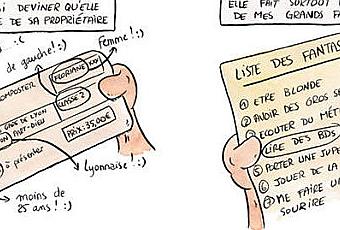 SI DEVINER QU'ELLE
E DE SA PROPRIÉTAIRE
de gauche ! :)
femme ! :)
COMPOSTER
FLORIANE
CLASSE 2
GARE DE LYON
PART-DIEU
PRIX : 35,00€
à présenter
Lyonnaise ! :)
moins de
25 ans ! :)
ELLE FAIT SURTOUT
DE MES GRANDS
LISTE DES FANTAS
① ETRE BLONDE
② AVOIR DES GROS SE
③ ECOUTER DU MÉT
④ LIRE DES BDS
⑤ PORTER UNE JUPE
⑥ JOUER DE LA
⑦ ME FAIRE UN
SOURIRE